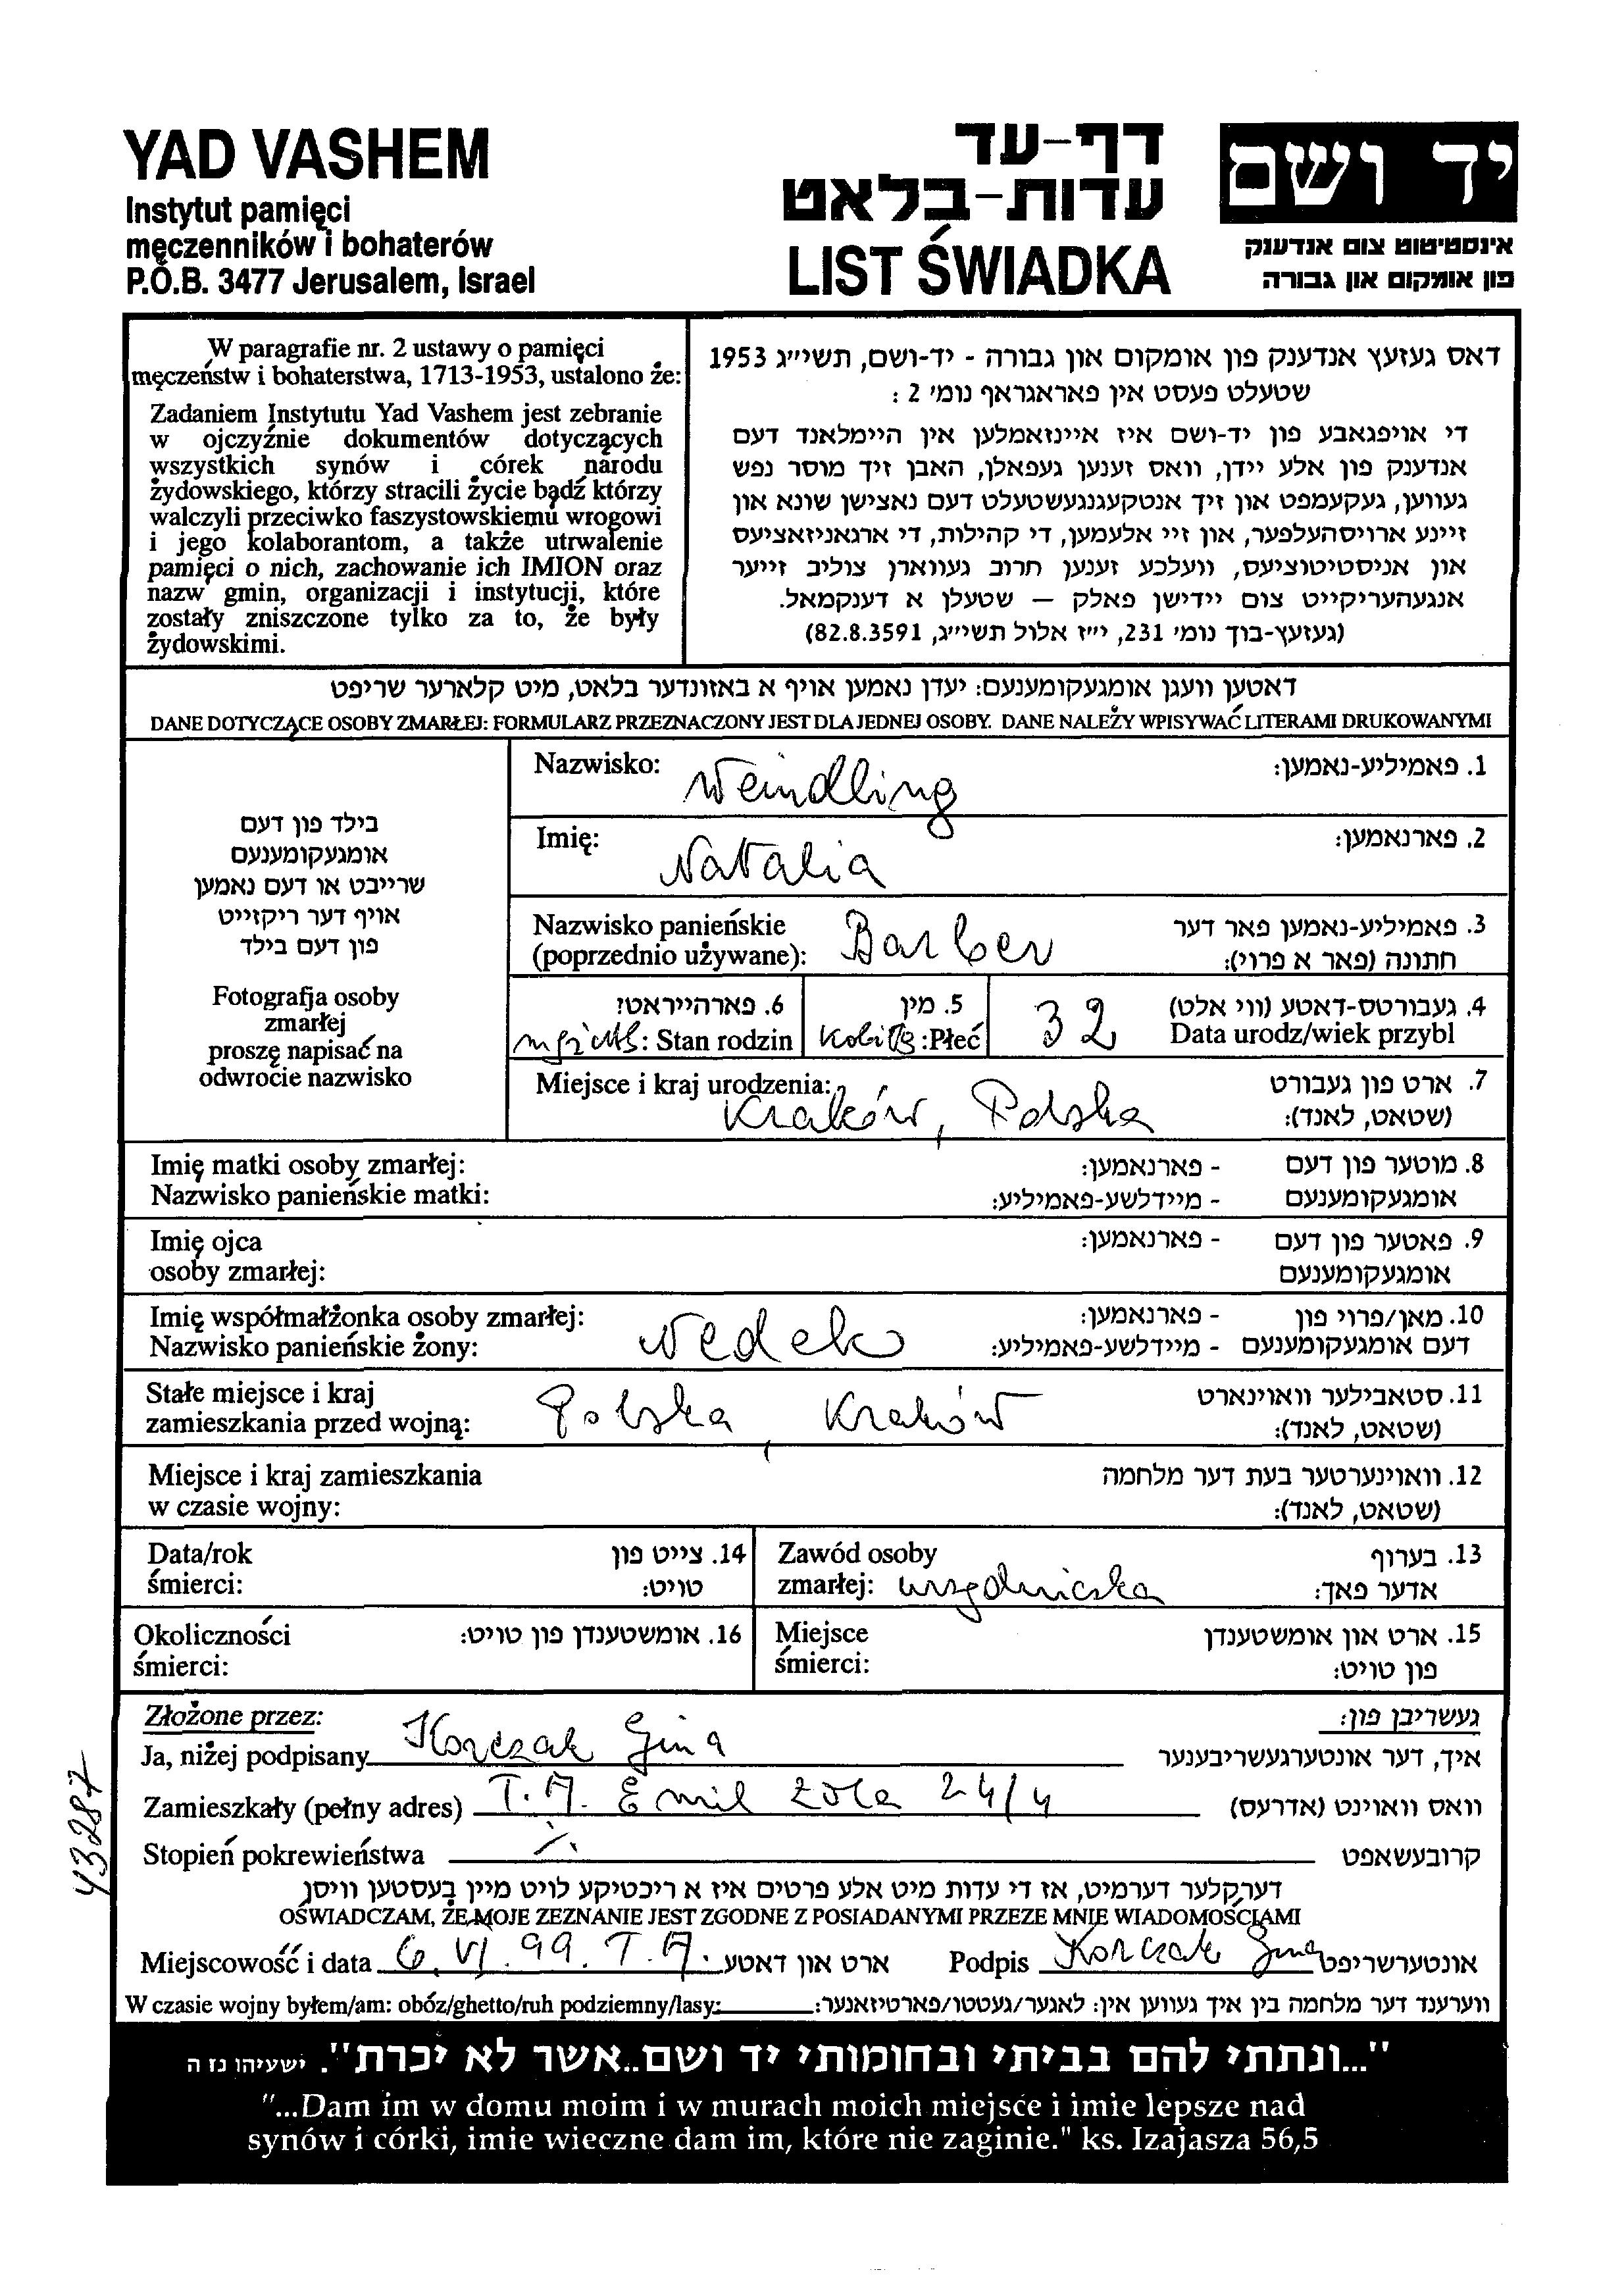 YAD VASHEM
Instytut pamięci
męczenników i bohaterów
P.O.B. 3477 Jerusalem, Israel
דף-עד
עדות-בלאט
LIST ŚWIADKA
יד ושם
אינסטיטוט צום אנדענק
פון אומקום און גבורה
W paragrafie nr. 2 ustawy o pamięci
męczeństw i bohaterstwa, 1713-1953, ustalono że:
Zadaniem Instytutu Yad Vashem jest zebranie
w ojczyźnie dokumentów dotyczących
wszystkich synów i córek narodu
żydowskiego, którzy stracili życie bądź którzy
walczyli przeciwko faszystowskiemu wrogowi
i jego kolaborantom, a także utrwalenie
pamięci o nich, zachowanie ich IMION oraz
nazw gmin, organizacji i instytucji, które
zostały zniszczone tylko za to, że były
żydowskimi.
דאס געזעץ אנדענק פון אומקום און גבורה - יד-ושם, תשי״ג 1953
שטעלט פעסט אין פאראגראף נומ׳ 2 :
די אויפגאבע פון יד-ושם איז איינזאמלען אין היימלאנד דעם
אנדענק פון אלע יידן, וואס זענען געפאלן, האבן זיך מוסר נפש
געווען, געקעמפט און זיך אנטקעגנגעשטעלט דעם נאצישן שונא און
זיינע ארויסהעלפער, און זיי אלעמען, די קהילות, די ארגאניזאציעס
און אניסטיטוציעס, וועלכע זענען חרוב געווארן צוליב זייער
אנגעהעריקייט צום יידישן פאלק — שטעלן א דענקמאל.
(געזעץ-בוך נומ׳ 231, י״ז אלול תשי״ג, 82.8.3591)
דאטען וועגן אומגעקומענעם: יעדן נאמען אויף א באזונדער בלאט, מיט קלארער שריפט
DANE DOTYCZĄCE OSOBY ZMARŁEJ: FORMULARZ PRZEZNACZONY JEST DLA JEDNEJ OSOBY. DANE NALEŻY WPISYWAĆ LITERAMI DRUKOWANYMI
בילד פון דעם
אומגעקומענעם
שרייבט או דעם נאמען
אויף דער ריקזייט
פון דעם בילד
Fotografja osoby
zmarłej
proszę napisać na
odwrocie nazwisko
Nazwisko: Weindling 1. פאמיליע-נאמען:
Imię: Natalia 2. פארנאמען:
Nazwisko panieńskie 3. פאמיליע-נאמען פאר דער
(poprzednio używane): Barber חתונה (פאר א פרוי):
6. פארהייראט? 5. מין 32 4. געבורטס-דאטע (ווי אלט)
: Stan rodzin :Płeć Data urodz/wiek przybl
Miejsce i kraj urodzenia: 7. ארט פון געבורט
Kraków, Polska (שטאט, לאנד):
Imię matki osoby zmarłej: - פארנאמען: 8. מוטער פון דעם
Nazwisko panieńskie matki: - מיידלשע-פאמיליע: אומגעקומענעם
Imię ojca - פארנאמען: 9. פאטער פון דעם
osoby zmarłej: אומגעקומענעם
Imię współmałżonka osoby zmarłej: - פארנאמען: 10. מאן/פרוי פון
Nazwisko panieńskie żony: Nedek - מיידלשע-פאמיליע: דעם אומגעקומענעם
Stałe miejsce i kraj 11. סטאבילער וואוינארט
zamieszkania przed wojną: Polska, Kraków (שטאט, לאנד):
Miejsce i kraj zamieszkania 12. וואוינערטער בעת דער מלחמה
w czasie wojny: (שטאט, לאנד):
Data/rok 14. צייט פון Zawód osoby 13. בערוף
śmierci: טויט: zmarłej: urzędniczka אדער פאך:
Okoliczności 16. אומשטענדן פון טויט: Miejsce 15. ארט און אומשטענדן
śmierci: śmierci: פון טויט:
Złożone przez: געשריבן פון:
Ja, niżej podpisany Korczak Gina איך, דער אונטערגעשריבענער
Zamieszkały (pełny adres) T.A. Emil Zola 24/4 וואס וואוינט (אדרעס)
Stopień pokrewieństwa קרובעשאפט
דערקלער דערמיט, אז די עדות מיט אלע פרטים איז א ריכטיקע לויט מיין בעסטען וויסן
OŚWIADCZAM, ŻE MOJE ZEZNANIE JEST ZGODNE Z POSIADANYMI PRZEZE MNIE WIADOMOŚCIAMI
Miejscowość i data 6.VI.99. T.A. ארט און דאטע Podpis Korczak Gina אונטערשריפט
W czasie wojny byłem/am: obóz/ghetto/ruh podziemny/lasy: ווערענד דער מלחמה בין איך געווען אין: לאגער/געטטו/פארטיזאנער:
43287
"...ונתתי להם בביתי ובחומותי יד ושם..אשר לא יכרת". ישעיהו נז ה
"...Dam im w domu moim i w murach moich miejsce i imie lepsze nad
synów i córki, imie wieczne dam im, które nie zaginie." ks. Izajasza 56,5